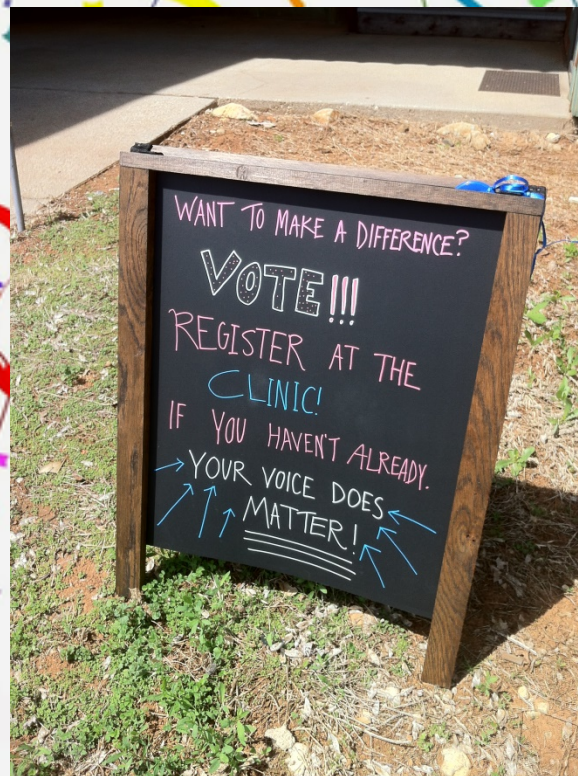 WANT TO MAKE A DIFFERENCE?
VOTE!!!
REGISTER AT THE
CLINIC!
IF YOU HAVEN'T ALREADY.
YOUR VOICE DOES
MATTER!